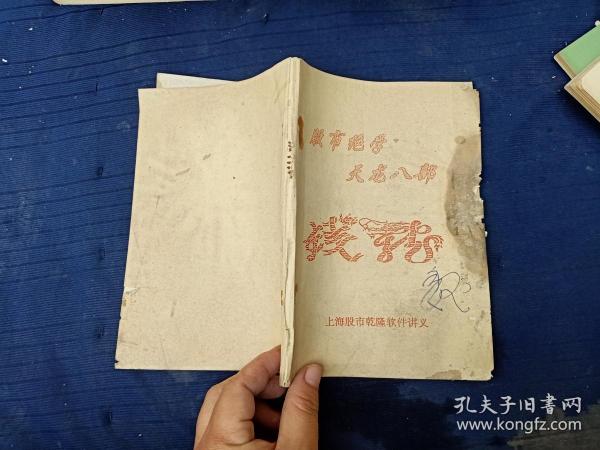 股市绝学
天龙八部
钱龙
上海股市乾隆软件讲义
孔夫子旧书网
www.kongfz.com